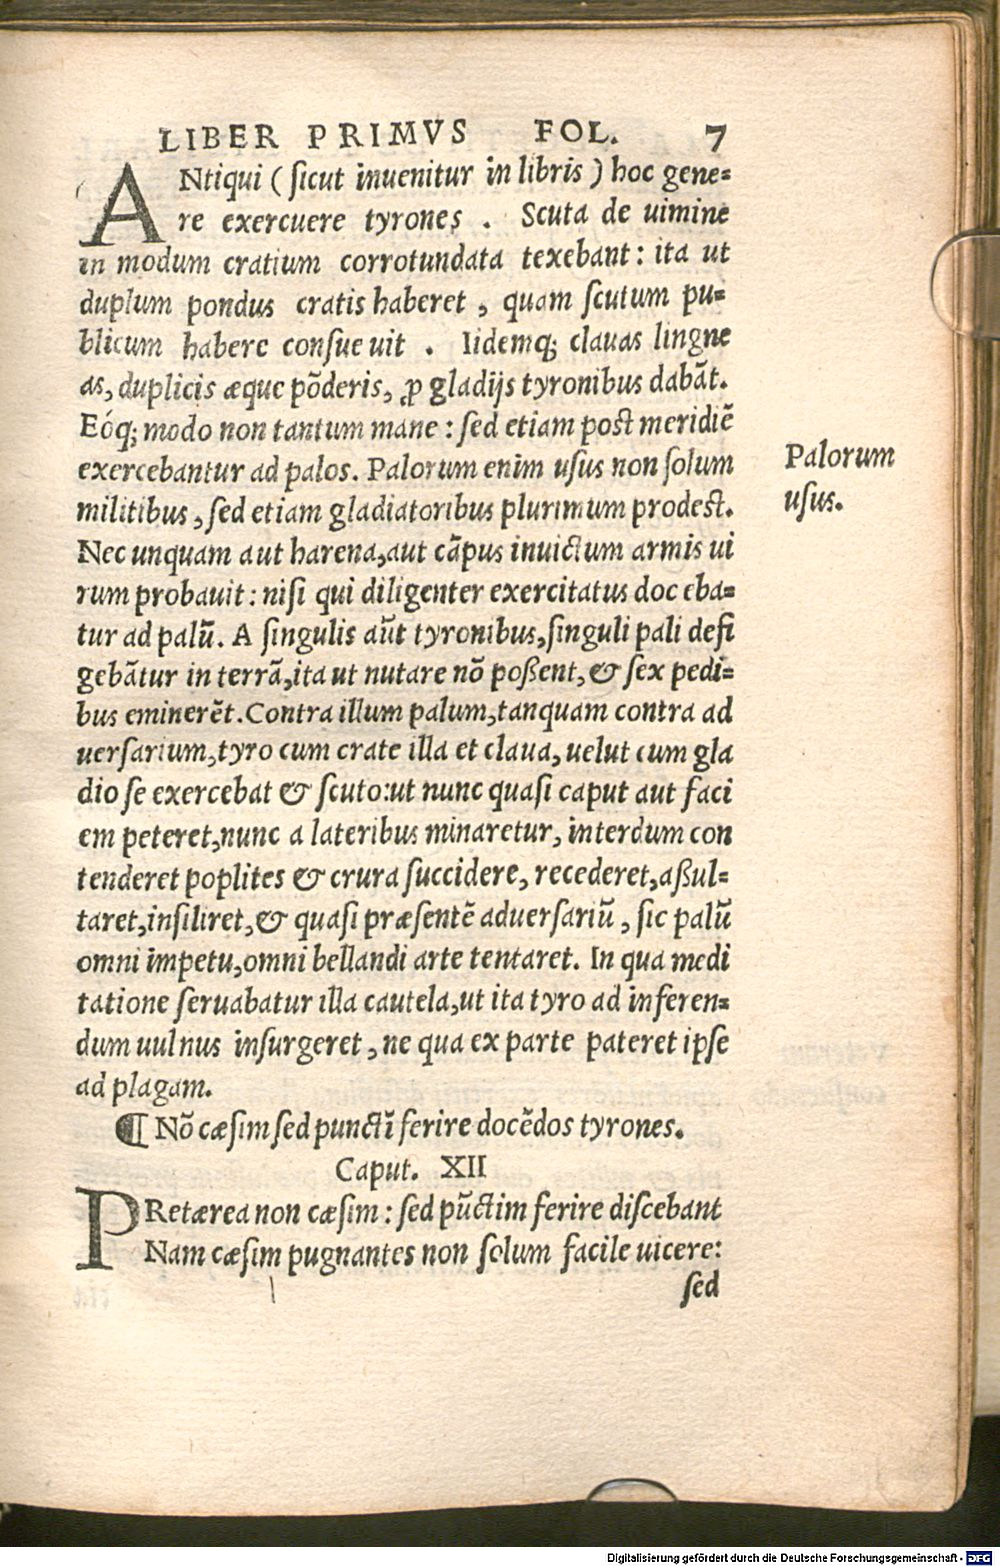 LIBER PRIMVS FOL. 7
ANtiqui ( sicut inuenitur in libris ) hoc gene=
re exercuere tyrones . Scuta de uimine
in modum cratium corrotundata texebant : ita ut
duplum pondus cratis haberet , quam scutum pu=
blicum habere consueuit . Iidemq; clauas lingne
as, duplicis æque põderis, ꝓ gladijs tyronibus dabãt.
Eóq; modo non tantum mane : sed etiam post meridiẽ
exercebantur ad palos. Palorum enim usus non solum
militibus , sed etiam gladiatoribus plurimum prodest.
Nec unquam aut harena, aut cãpus inuictum armis ui
rum probauit : nisi qui diligenter exercitatus doc eba=
tur ad palũ. A singulis aũt tyronibus, singuli pali defi
gebãtur in terrã, ita ut nutare nõ poßent, & sex pedi=
bus eminerẽt. Contra illum palum, tanquam contra ad
uersarium, tyro cum crate illa et claua, uelut cum gla
dio se exercebat & scuto: ut nunc quasi caput aut faci
em peteret, nunc a lateribus minaretur, interdum con
tenderet poplites & crura succidere, recederet, aßul=
taret, insiliret, & quasi præsentẽ aduersariũ , sic palũ
omni impetu, omni bellandi arte tentaret. In qua medi
tatione seruabatur illa cautela, ut ita tyro ad inferen=
dum uulnus insurgeret , ne qua ex parte pateret ipse
ad plagam.
Palorum
usus.
¶ Nõ cæsim sed punctĩ ferire docẽdos tyrones.
Caput. XII
PRetærea non cæsim : sed pũctim ferire discebant
Nam cæsim pugnantes non solum facile uicere:
sed
Digitalisierung gefördert durch die Deutsche Forschungsgemeinschaft - DFG